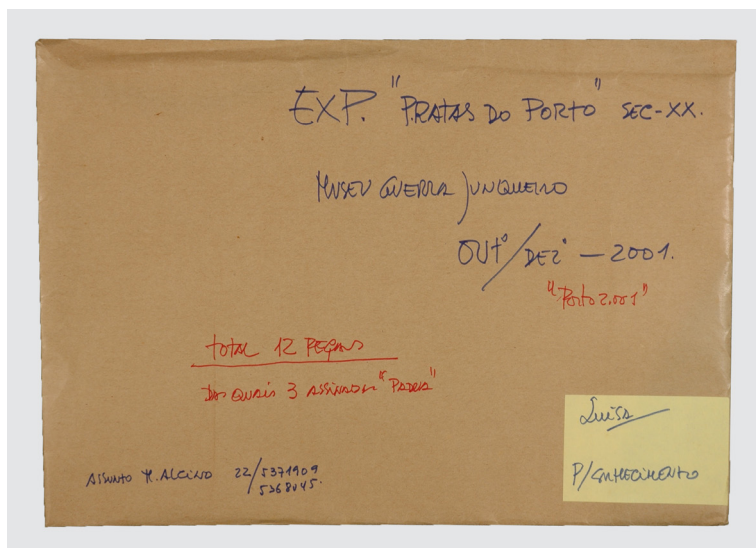 EXP. "PRATAS DO PORTO" SEC-XX.
MUSEU GUERRA JUNQUEIRO
OUTº/DEZº — 2001.
"Porto 2.001"
TOTAL 12 PEÇAS
DAS QUAIS 3 ASSINADAS "PADUA"
Luísa
P/CONHECIMENTO
ASSUNTO M. ALCINO 22/5371909
5368045.